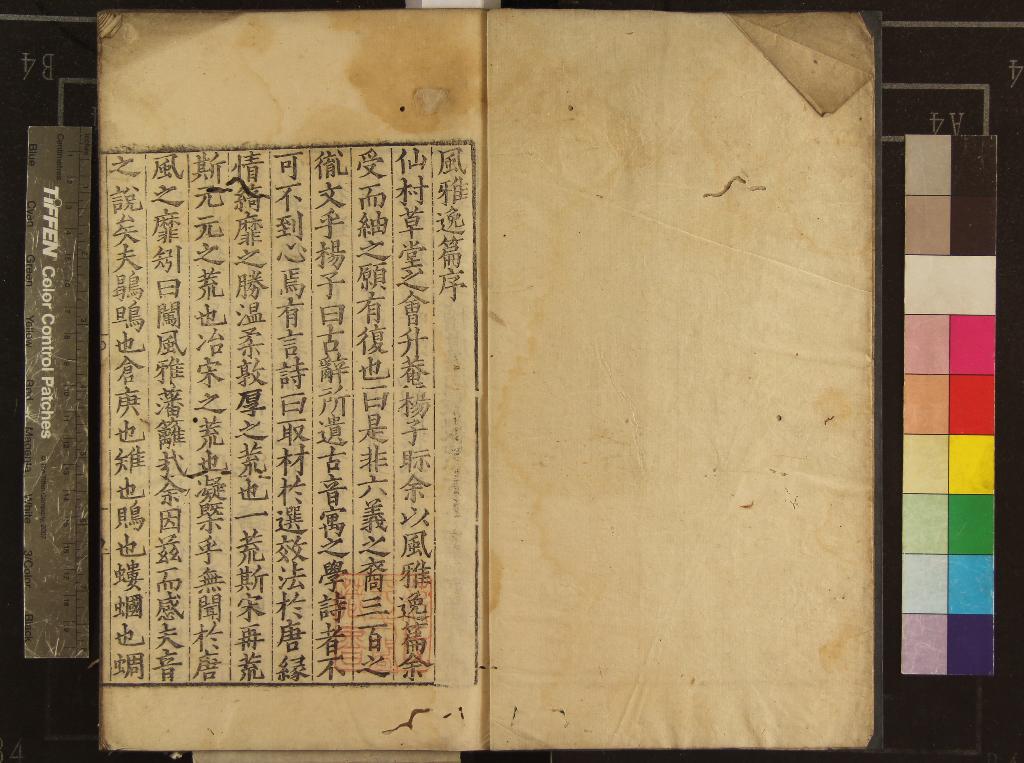 風雅逸篇序
仙村草堂之會升菴楊子眎余以風雅逸篇余
受而紬之願有復也曰是非六義之裔三百之
胤文乎楊子曰古辭所遺古音寓之學詩者不
可不到心焉有言詩曰取材於選效法於唐緣
情綺靡之勝溫柔敦厚之荒也一荒斯宋再荒
斯元元之荒也冶宋之荒也凝槩乎無聞於唐
風之靡矧曰闖風雅藩籬哉余因茲而感夫音
之說矣夫鶗鴡也倉庚也雉也鵙也螻蟈也蜩
TIFFEN Color Control Patches
Centimetres
Blue
Cyan
Green
Yellow
Red
Magenta
White
3/Color
Black
B4
A4
4
34